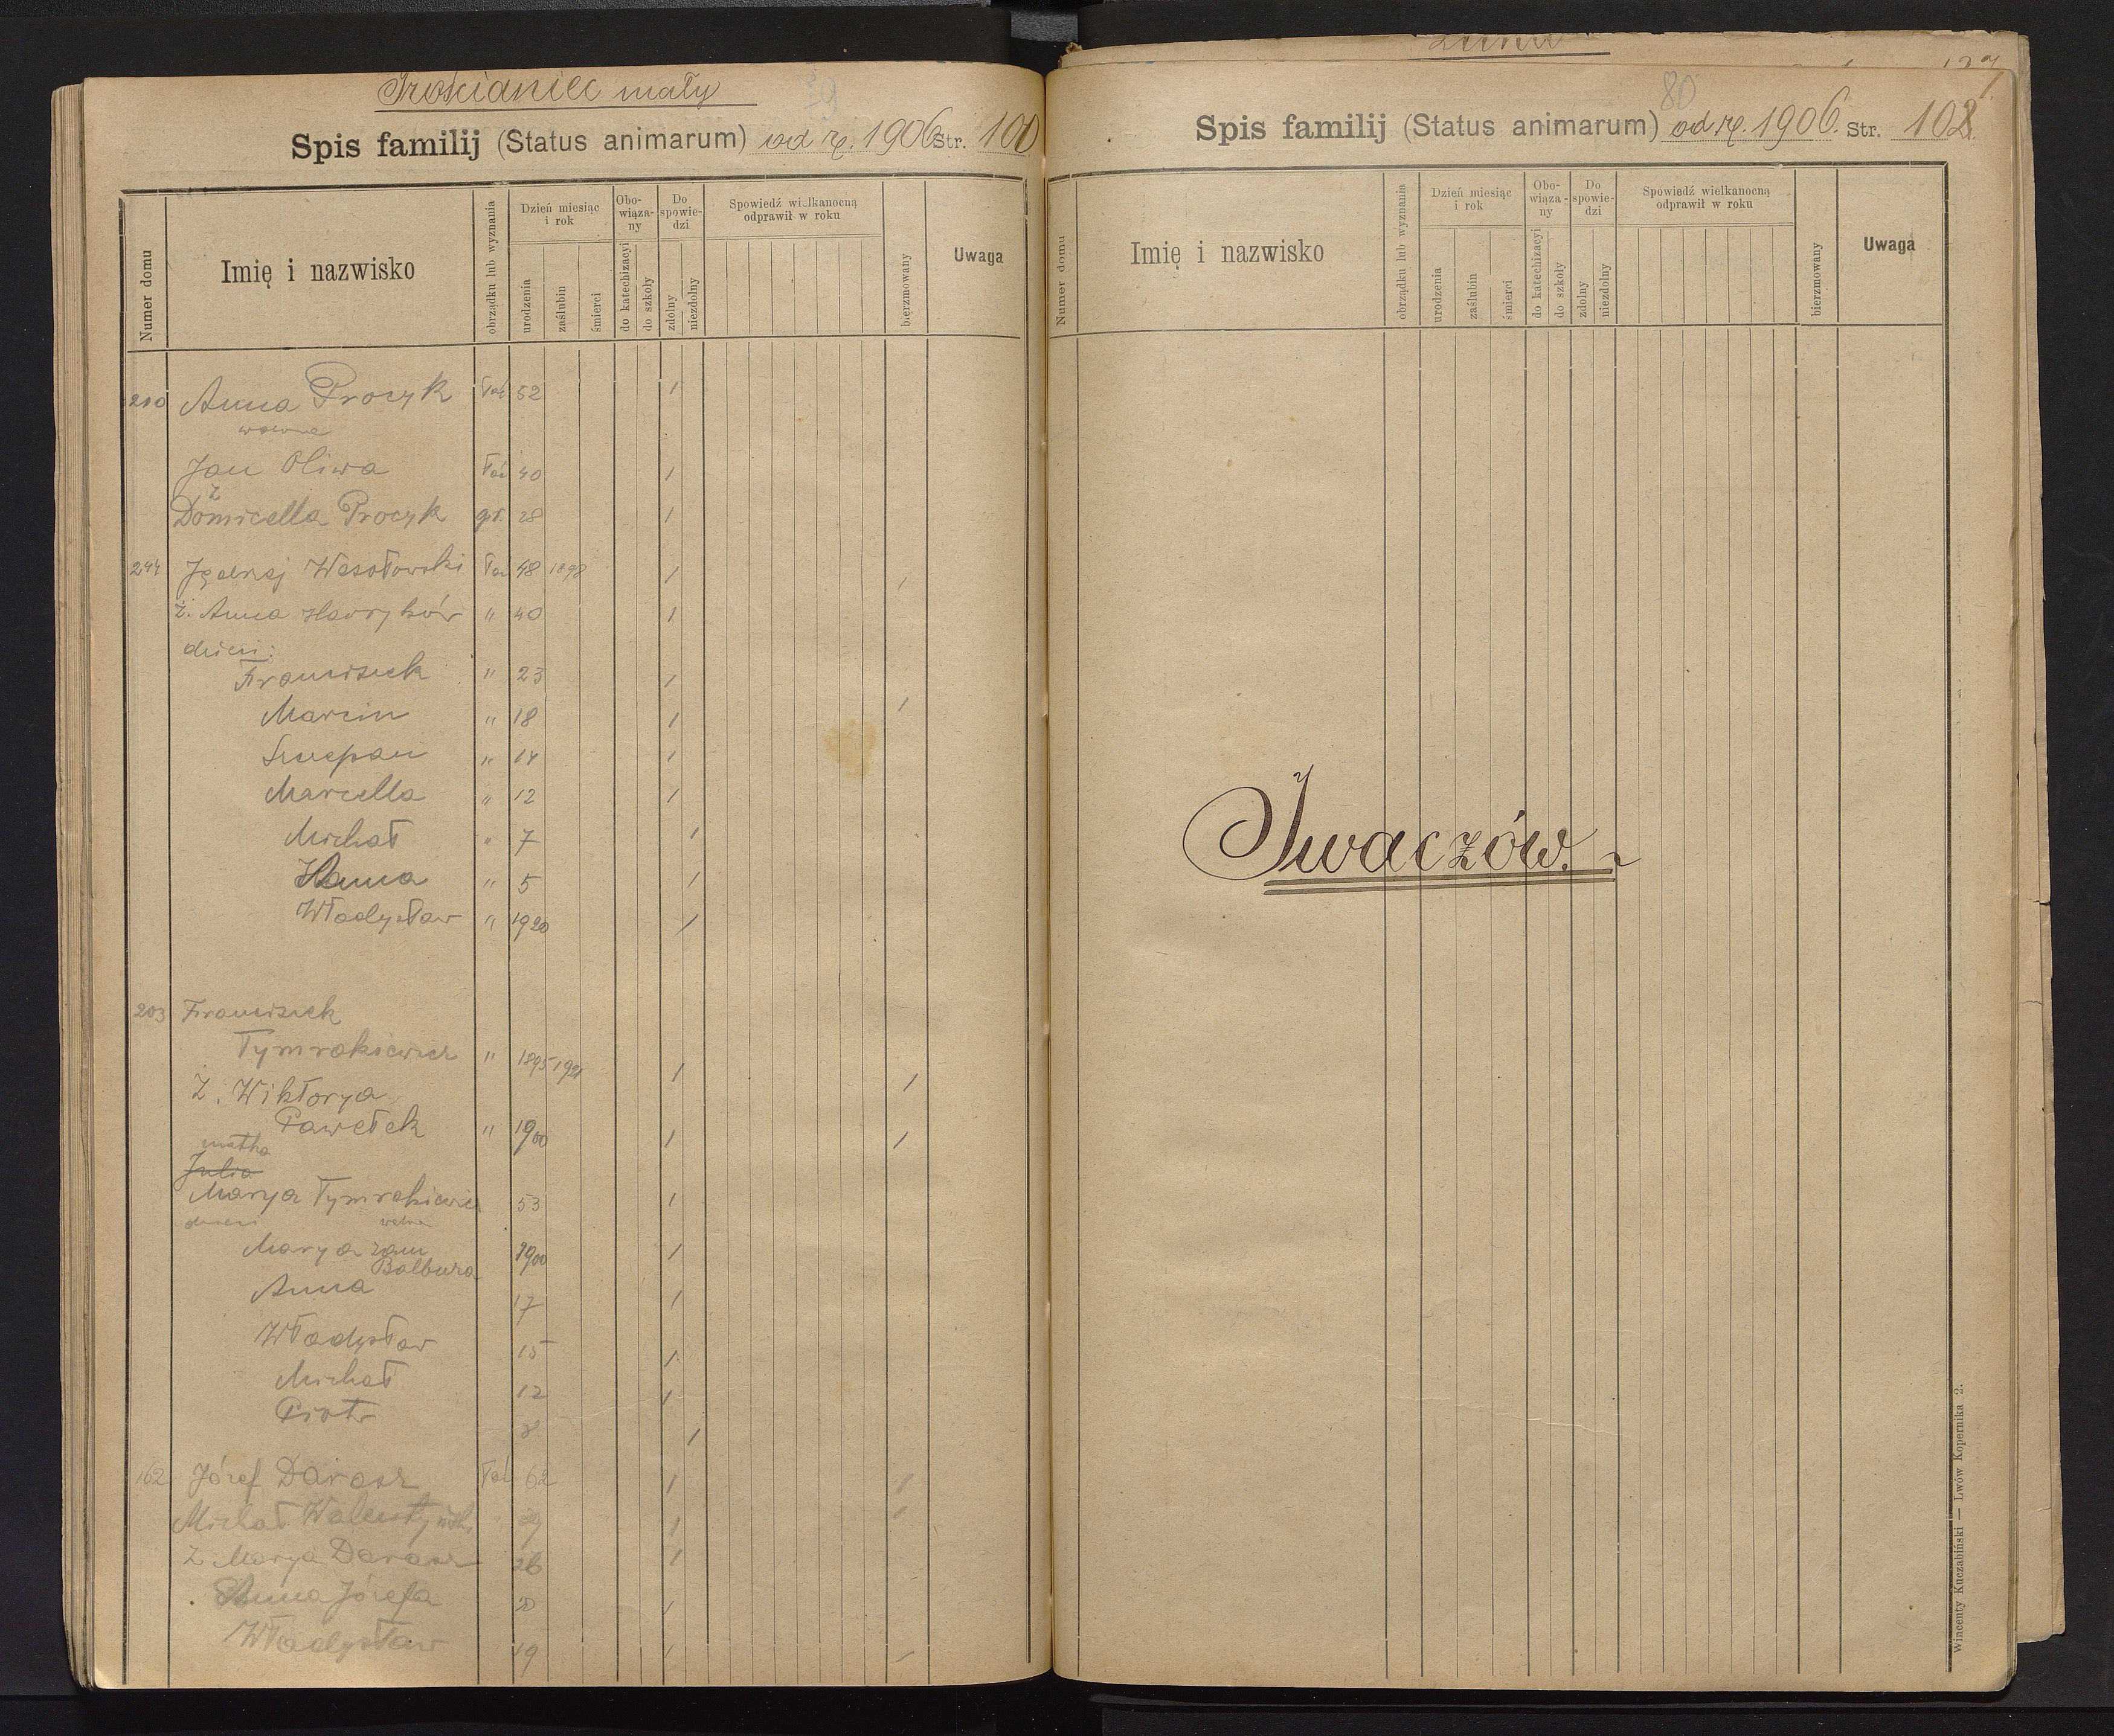 Trościaniec mały
Spis familij (Status animarum) od r. 1906 Str. 100
Numer domu
Imię i nazwisko
obrządku lub wyznania
Dzień miesiąc i rok
urodzenia
zaślubin
śmierci
Obowiąza-ny
do katechizacyi
do szkoły
Do spowie-dzi
zdolny
niezdolny
Spowiedź wielkanocną odprawił w roku
bierzmowany
Uwaga
210 Anna Procyk łać 52 /
wdowa
Jan Oliwa łać 40 /
ż
Domicella Procyk gr. 28 /
244 Jędrzej Wesołowski łać 48 1898 / /
ż. Anna Hawryków " 40 /
dzieci:
Franciszek " 23 /
Marcin " 18 / /
Szczepan " 14 /
Marcella " 12 /
Michał " 7 /
Hanna " 5 /
Władysław " 1920 /
203 Franciszek
Tymrakiewicz " 1895 1921 / /
Ż. Wiktorya
Pawełek " 1900 / /
matka
Julia
Marya Tymrakiewicz 53 /
dzieci wdowa
Marya zam 1900 /
Balbura
Anna 17 /
Władysław 15 /
Michał 12 /
Piotr 8 /
162 Józef Darasz łać 62 / /
Michał 29 / /
Ż Marya Darasz 26 /
Anna Józefa 20 /
Władysław 19 / /
80
Spis familij (Status animarum) od r. 1906. Str. 102
Numer domu
Imię i nazwisko
obrządku lub wyznania
Dzień miesiąc i rok
urodzenia
zaślubin
śmierci
Obo-wiąza-ny
do katechizacyi
do szkoły
Do spowie-dzi
zdolny
niezdolny
Spowiedź wielkanocną odprawił w roku
bierzmowany
Uwaga
Iwaczów.
Wincenty Kuczabiński — Lwów Kopernika 2.